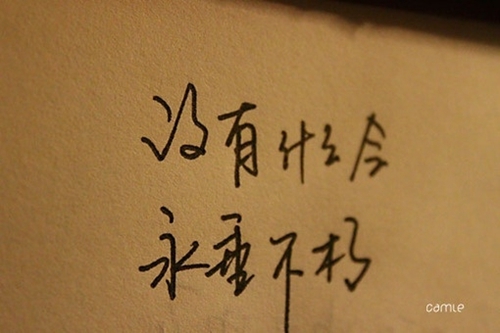 没有什么会
永垂不朽
camle